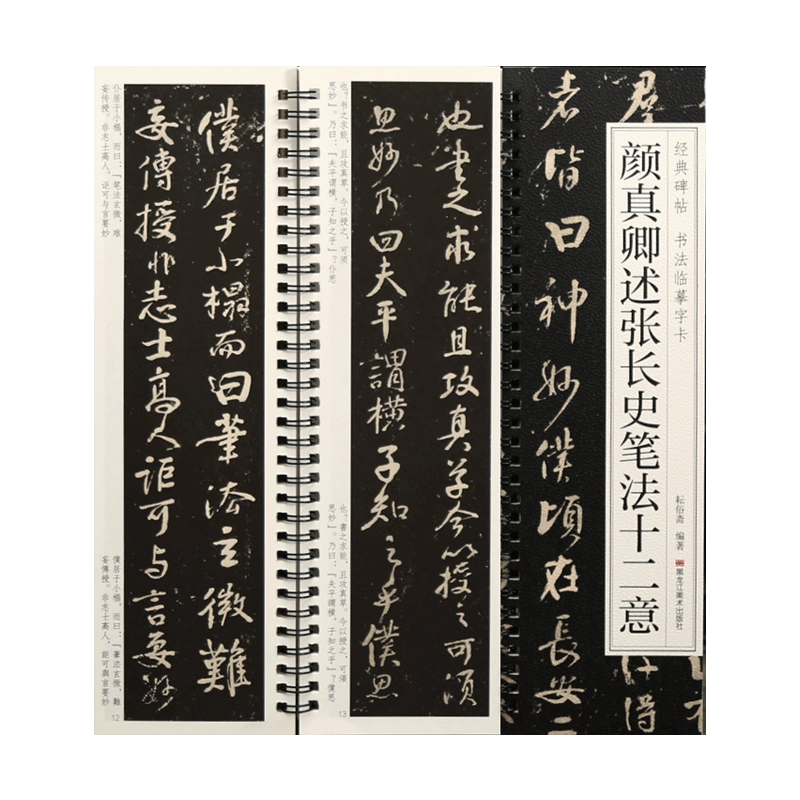 僕居于小榻而曰筆法玄微難
妄傳授非志士高人詎可与言要妙
仆居于小榻，而曰：「笔法玄微，难
妄传授。非志士高人，讵可与言要妙
僕居于小榻，而曰：「筆法玄微，難
妄傳授。非志士高人，詎可與言要妙
12
也書之求能且攻真草今以授之可須
思妙乃曰夫平謂横子知之乎僕思
也？书之求能，且攻真草。今以授之，可须
思妙」。乃曰：「夫平谓横，子知之乎」？仆思
也？書之求能，且攻真草。今以授之，可須
思妙」。乃曰：「夫平謂横，子知之乎」？僕思
13
經典碑帖 书法临摹字卡
颜真卿述张长史笔法十二意
耘俗斋 编著
黑龙江美术出版社
者皆曰神妙僕頃在長安二